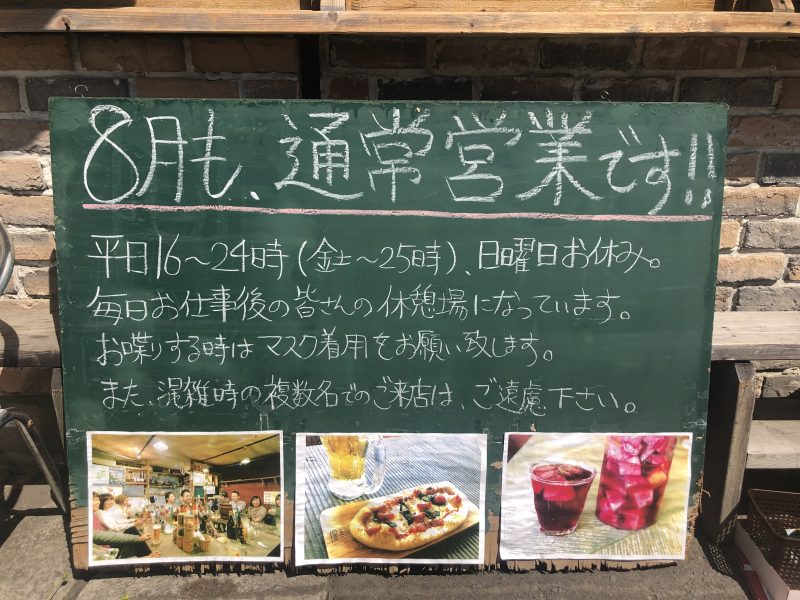 8月も、通常営業です!!
平日16〜24時(金土〜25時)、日曜日お休み。
毎日お仕事後の皆さんの休憩場になっています。
お喋りする時はマスク着用をお願い致します。
また、混雑時の複数名でのご来店は、ご遠慮下さい。